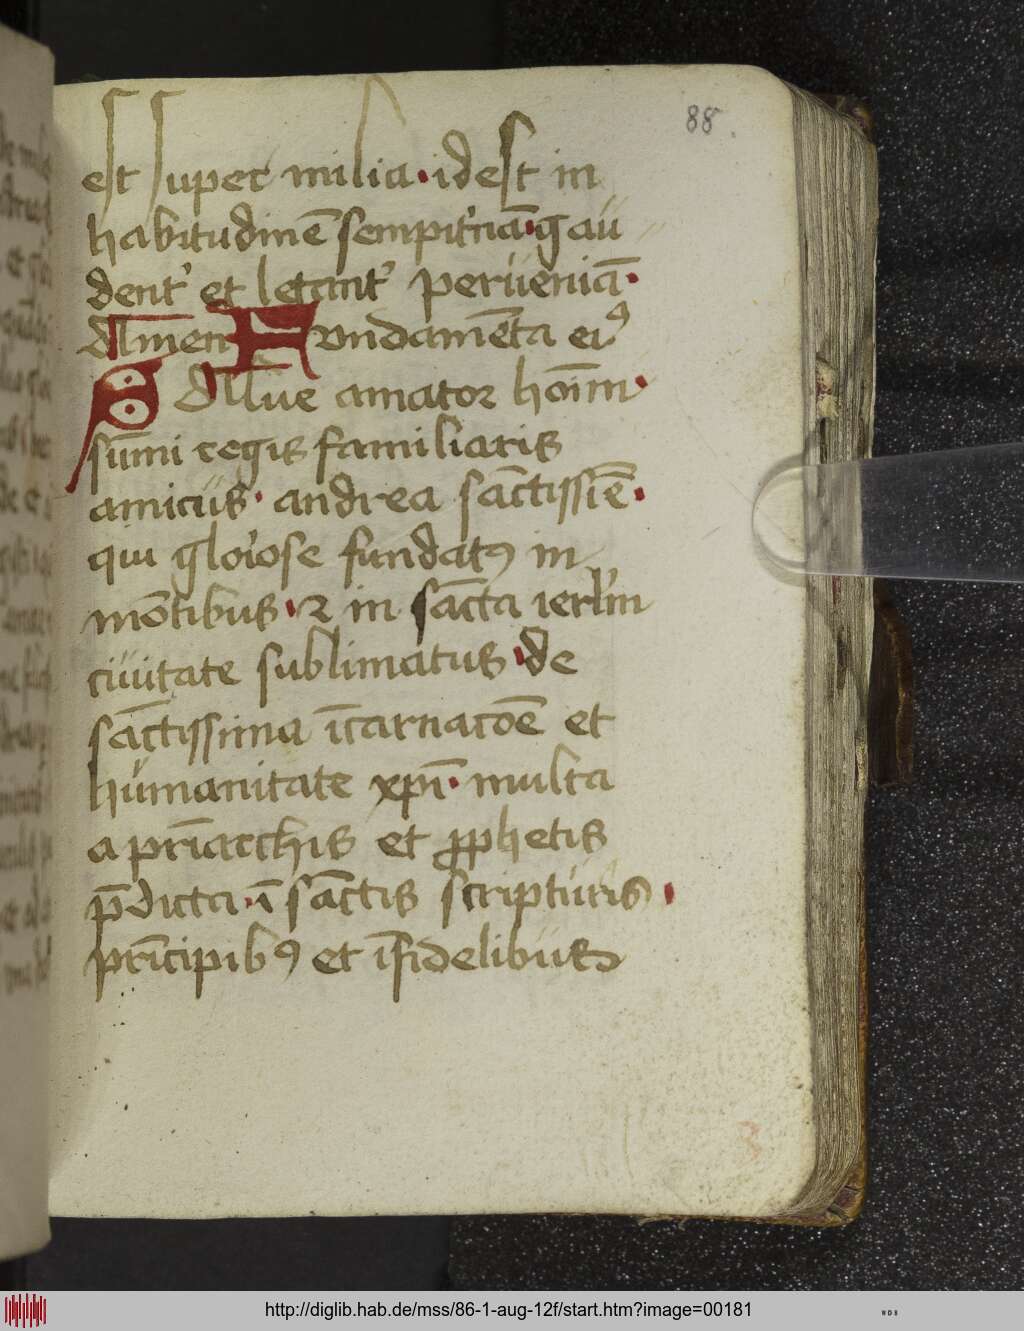 88.
est super milia · idest in
habitudinē sempit'nā · gau
dent' et letant' perueniā ·
Amen Fundamēta ei⁹
Salue amator hoīm ·
sūmi regis familiaris
amicus · andrea sāctissīē ·
qui glo'iose fundat⁹ in
mōtibus · ⁊ in sācta ierl'm
ciuitate sublimatus · de
sāctissima īcarnacōe et
humanitate xp̄i · multa
a pr̄iarchis et ꝓphetis
p̄dicta · ī sāctis scripturis ·
prīcipib⁹ et īfidelibus
http://diglib.hab.de/mss/86-1-aug-12f/start.htm?image=00181